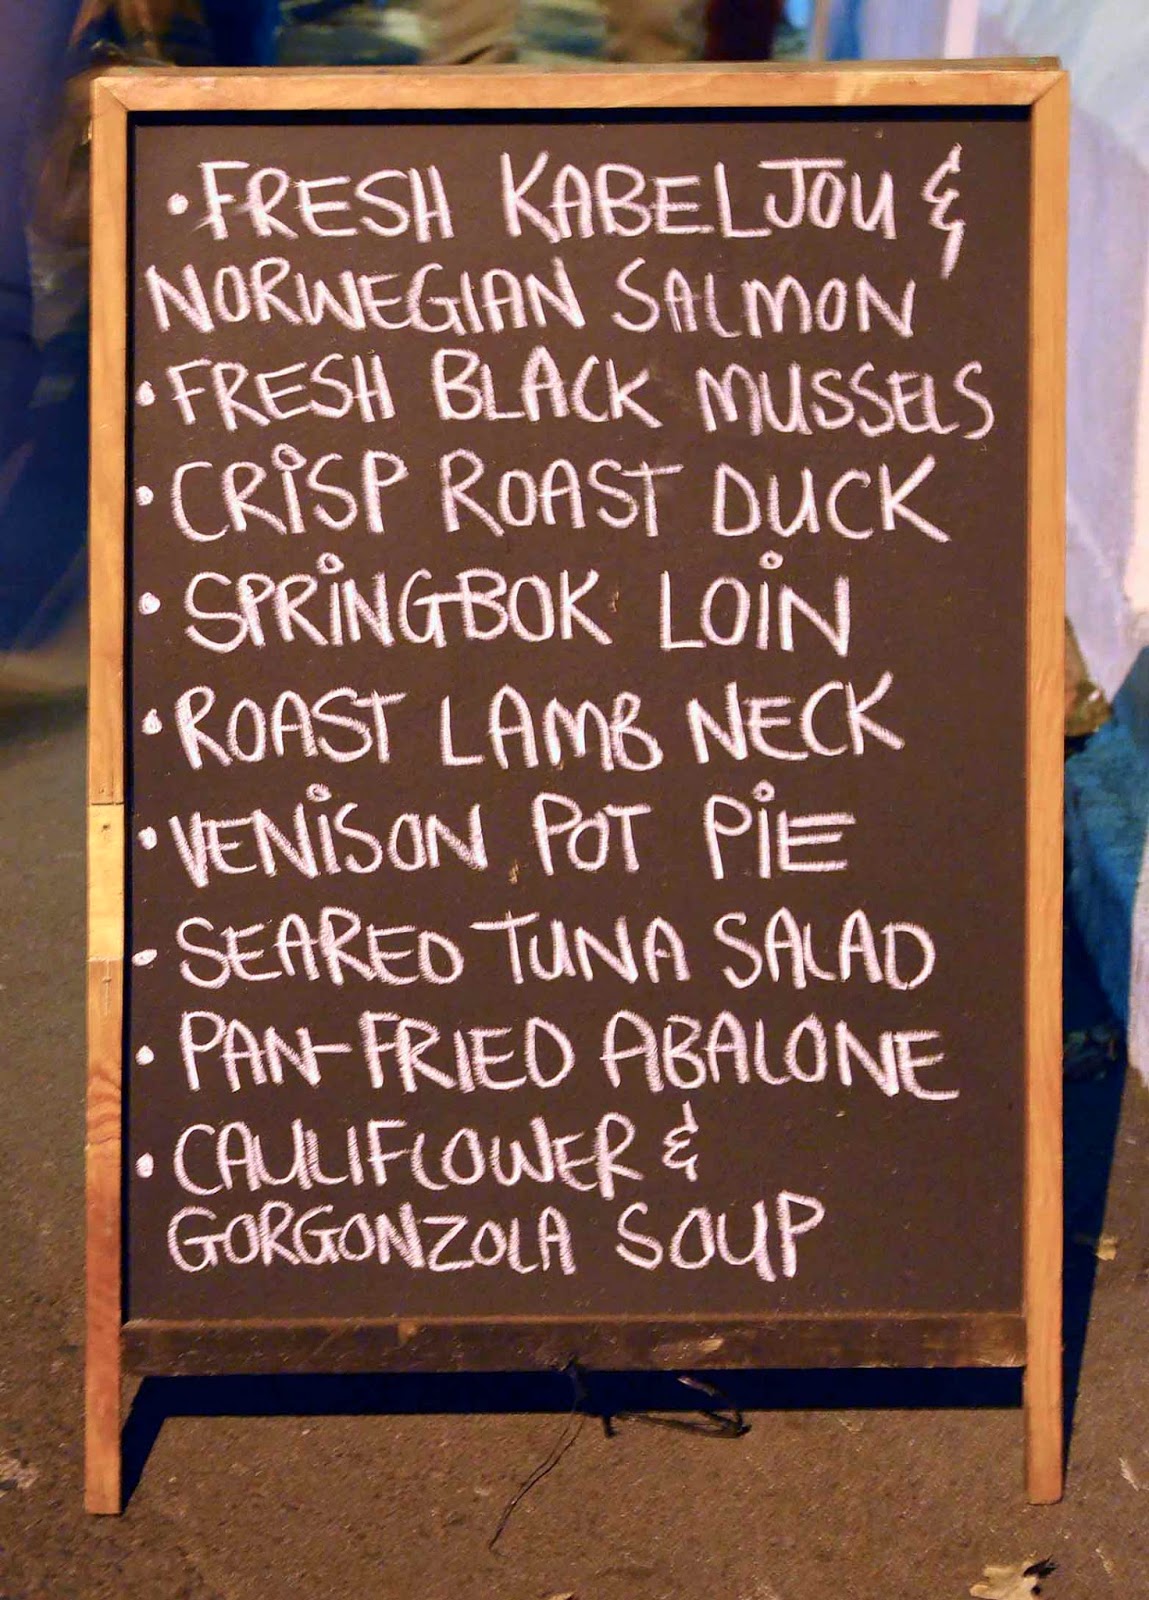 • FRESH KABELJOU &
NORWEGIAN SALMON
• FRESH BLACK MUSSELS
• CRISP ROAST DUCK
• SPRINGBOK LOIN
• ROAST LAMB NECK
• VENISON POT PIE
• SEARED TUNA SALAD
• PAN-FRIED ABALONE
• CAULIFLOWER &
GORGONZOLA SOUP